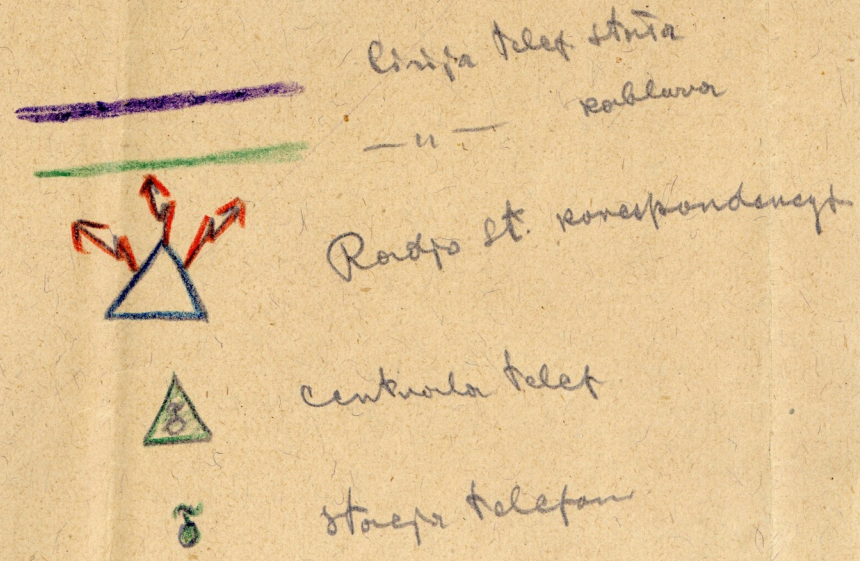 linja telef stała
—„— kablowa
Radjo st. korespondencyj
centrala telef
stacja telefon